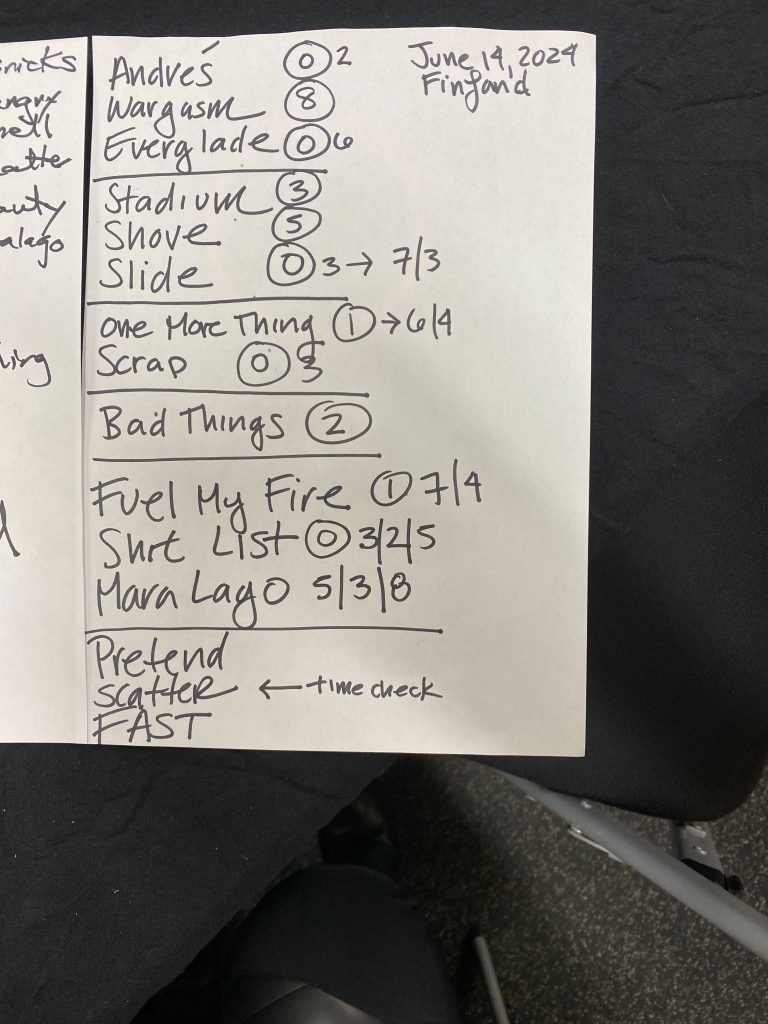 Andres 0 2
Wargasm 8
Everglade 0 6
June 14, 2024
Finland
Stadium 3
Shove 5
Slide 0 3 → 7/3
One More Thing 1 → 6/4
Scrap 0 3
Bad Things 2
Fuel My Fire 1 7/4
Shrt List 0 3/2/5
Mara Lago 5/3/8
Pretend
Scatter ← time check
FAST